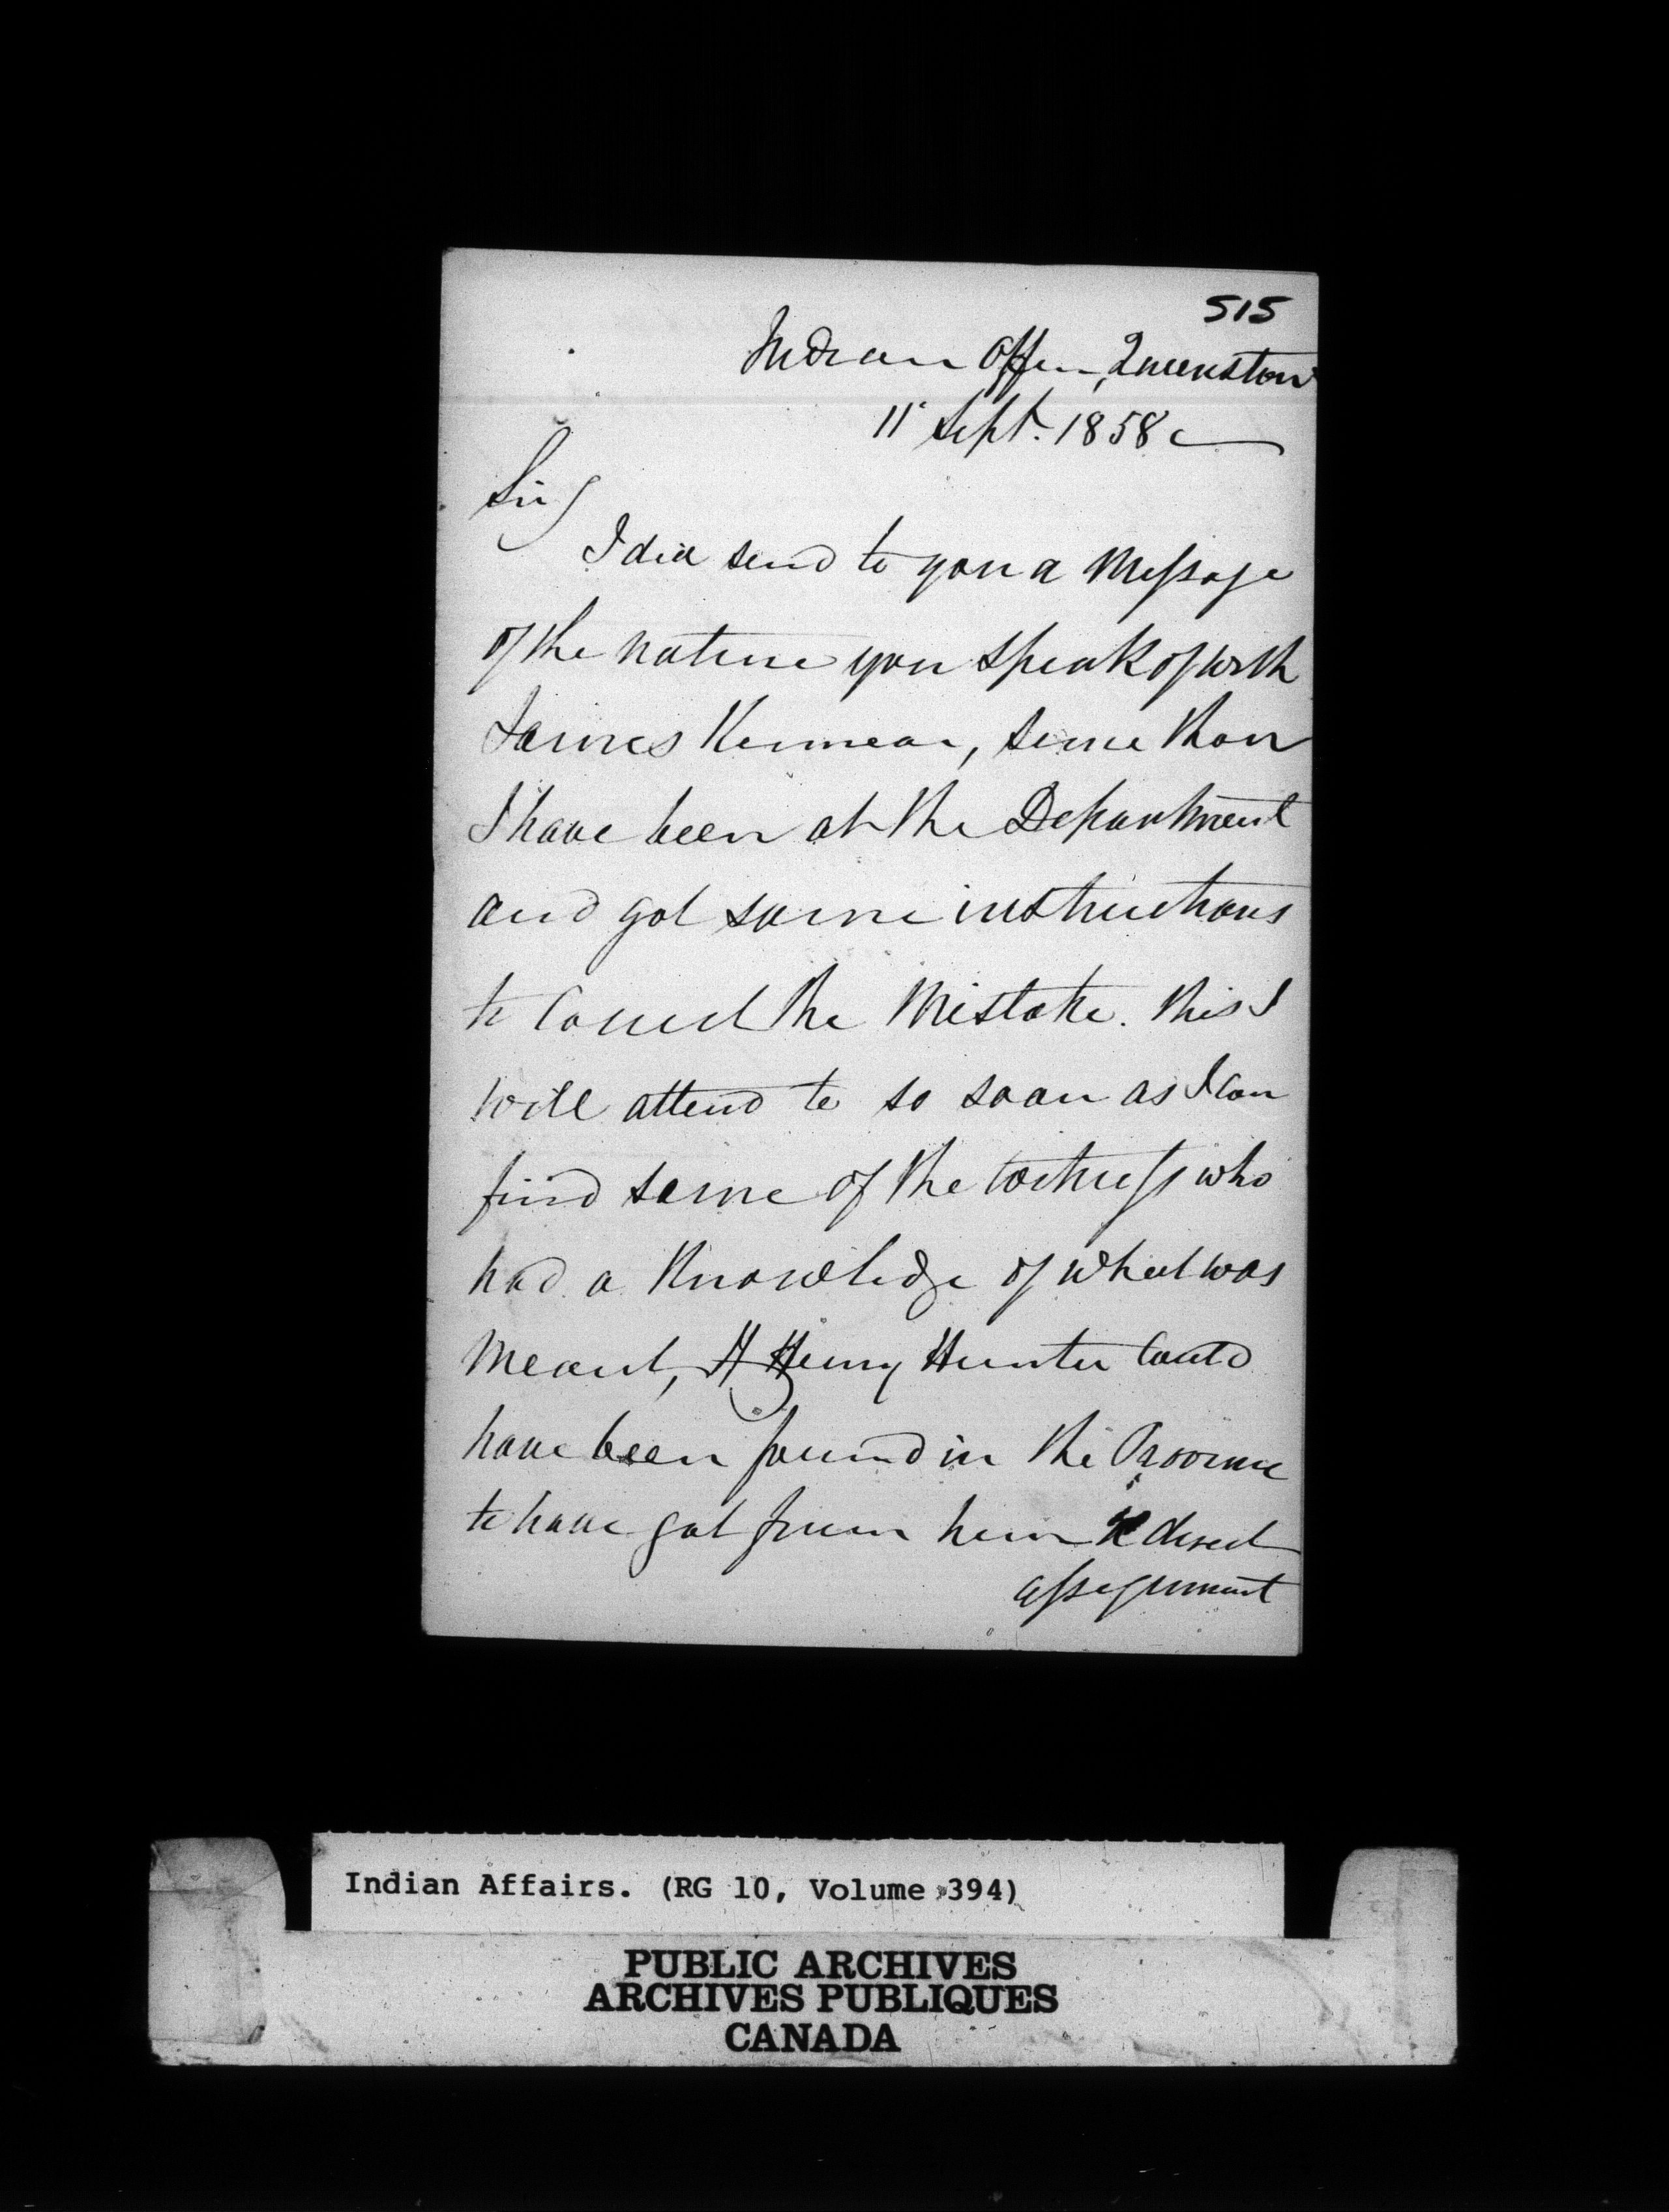 515
Indian Office, Queenston
11 Sept. 1858
Sir
I did send to you a Message
of the nature you speak of with
James Kennear, since then
I have been at the Department
and got some instructions
to Correct the Mistake. This I
will attend to so soon as I Can
find some of the witness who
had a Knowledge of what was
Meant, If Henry Hunter Could
have been found in the Province
to have got from him a direct
assignment
Indian Affairs. (RG 10, Volume 394)
PUBLIC ARCHIVES
ARCHIVES PUBLIQUES
CANADA